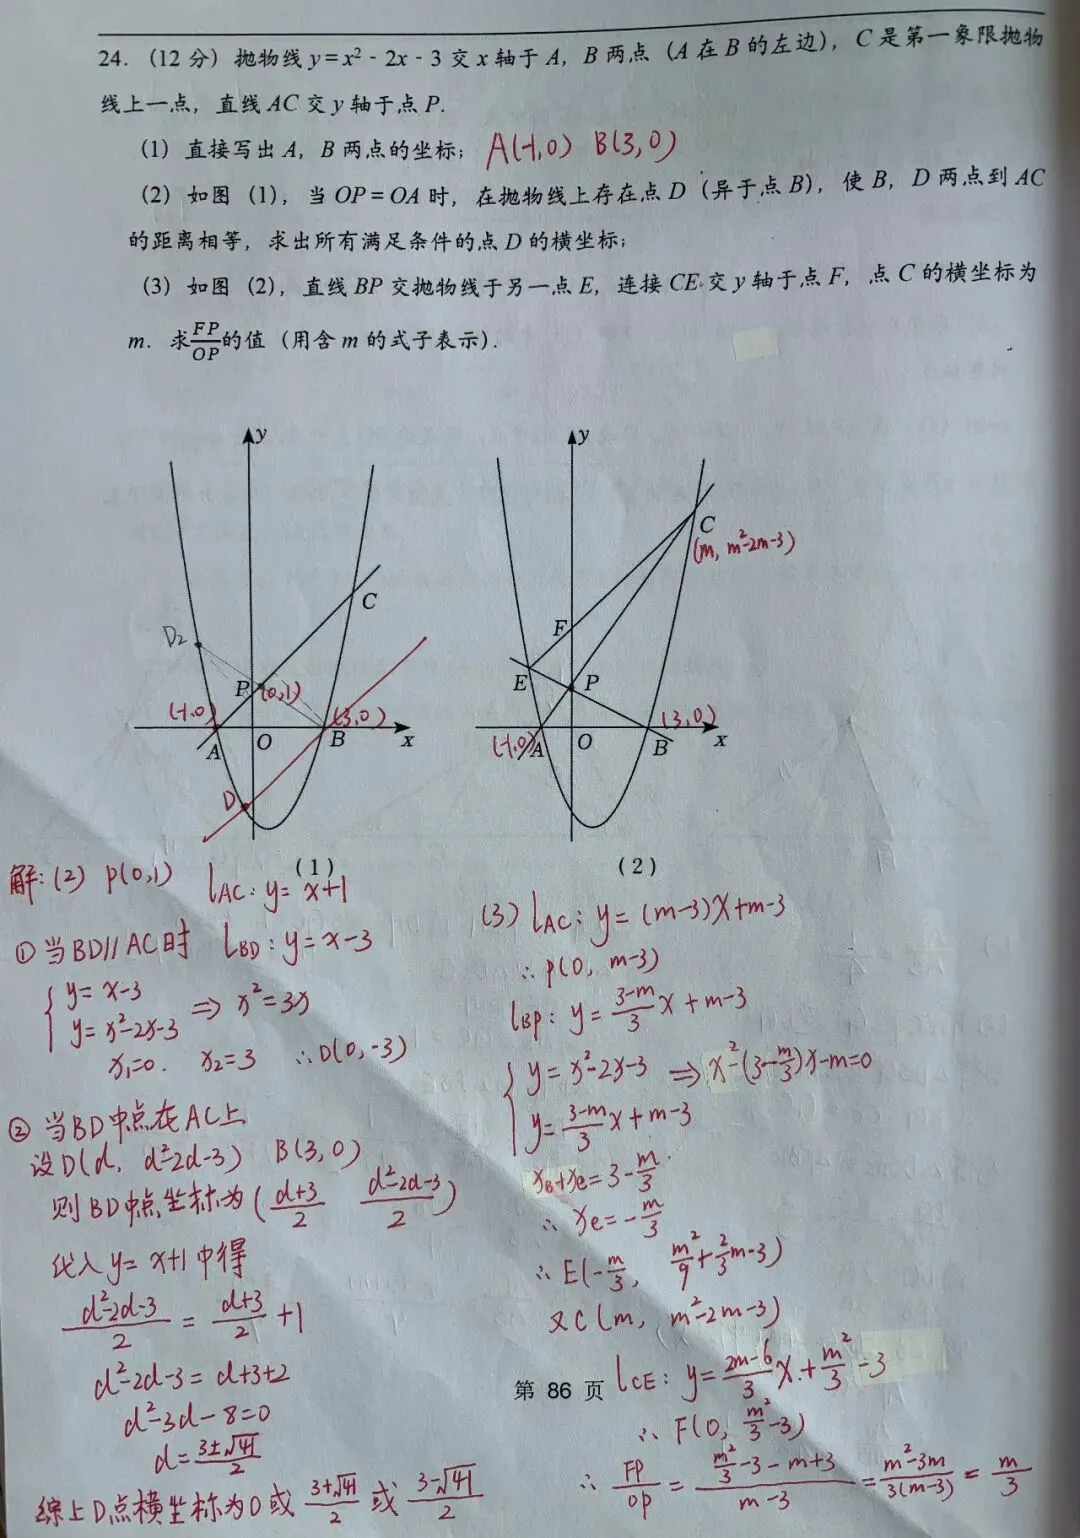 24. (12 分) 抛物线 y = x² - 2x - 3 交 x 轴于 A, B 两点 (A 在 B 的左边), C 是第一象限抛物
线上一点, 直线 AC 交 y 轴于点 P.
(1) 直接写出 A, B 两点的坐标; A(-1,0) B(3,0)
(2) 如图 (1), 当 OP = OA 时, 在抛物线上存在点 D (异于点 B), 使 B, D 两点到 AC
的距离相等, 求出所有满足条件的点 D 的横坐标;
(3) 如图 (2), 直线 BP 交抛物线于另一点 E, 连接 CE 交 y 轴于点 F, 点 C 的横坐标为
m. 求 FP/OP 的值 (用含 m 的式子表示).
y
C
D₂
P (0,1)
(-1,0) (3,0)
A O B x
D
(1)
y
C
(m, m²-2m-3)
F
E P
(3,0)
(-1,0) A O B x
(2)
解: (2) P(0,1) l_AC: y = x+1
① 当BD//AC时 l_BD: y = x-3
{ y = x-3
y = x²-2x-3 ⇒ x² = 3x
x₁=0. x₂=3 ∴D(0,-3)
② 当BD中点在AC上
设D(d, d²-2d-3) B(3,0)
则BD中点坐标为 ((d+3)/2 (d²-2d-3)/2)
代入 y = x+1 中得
(d²-2d-3)/2 = (d+3)/2 + 1
d²-2d-3 = d+3+2
d²-3d-8=0
d = (3±√41)/2
综上D点横坐标为0或 (3+√41)/2 或 (3-√41)/2
(3) l_AC: y = (m-3)x+m-3
∴ P(0, m-3)
l_BP: y = (3-m)/3 x + m-3
{ y = x²-2x-3 ⇒ x²-(3-m/3)x-m=0
y = (3-m)/3 x + m-3
x_B+x_e = 3-m/3
∴ x_e = -m/3
∴ E(-m/3, m²/9+2/3m-3)
又C(m, m²-2m-3)
l_CE: y = (2m-6)/3 x + m²/3 -3
∴ F(0, m²/3-3)
∴ FP/OP = (m²/3-3-m+3)/(m-3) = (m²-3m)/(3(m-3)) = m/3
第 86 页